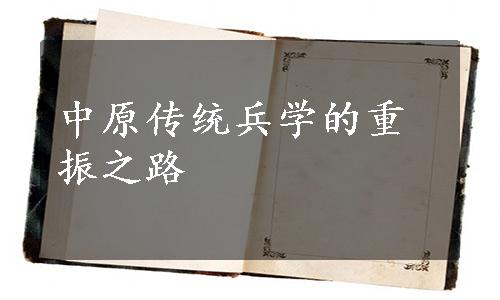 中原传统兵学的重
振之路